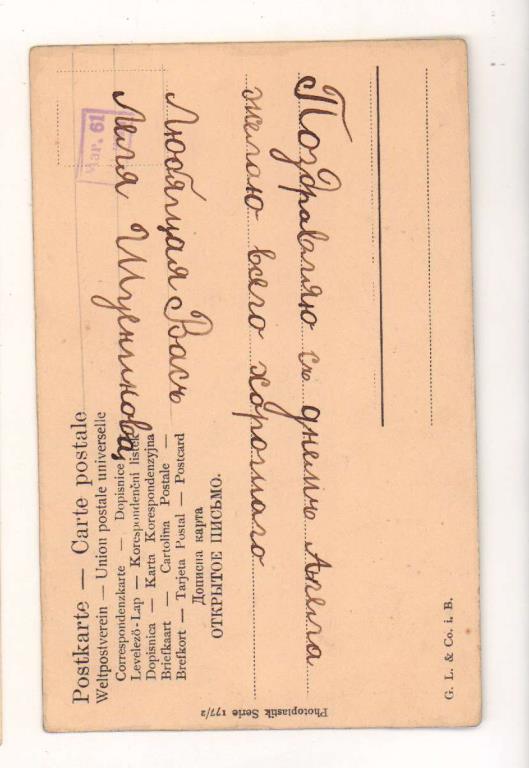 Postkarte — Carte postale
Weltpostverein — Union postale universelle
Correspondenzkarte — Dopisnice
Levelező-Lap — Korespondenční lístek
Dopisnica — Karta Korespondenzyjna
Briefkaart — Cartolina Postale —
Brefkort — Tarjeta Postal — Postcard
Дописна карта
ОТКРЫТОЕ ПИСЬМО.
Поздравляю съ днемъ Ангела
желаю всего хорошаго
Любящая Васъ
Леля
Photoplastik Serie 177/2
G. L. & Co. i. B.
Mar. 61